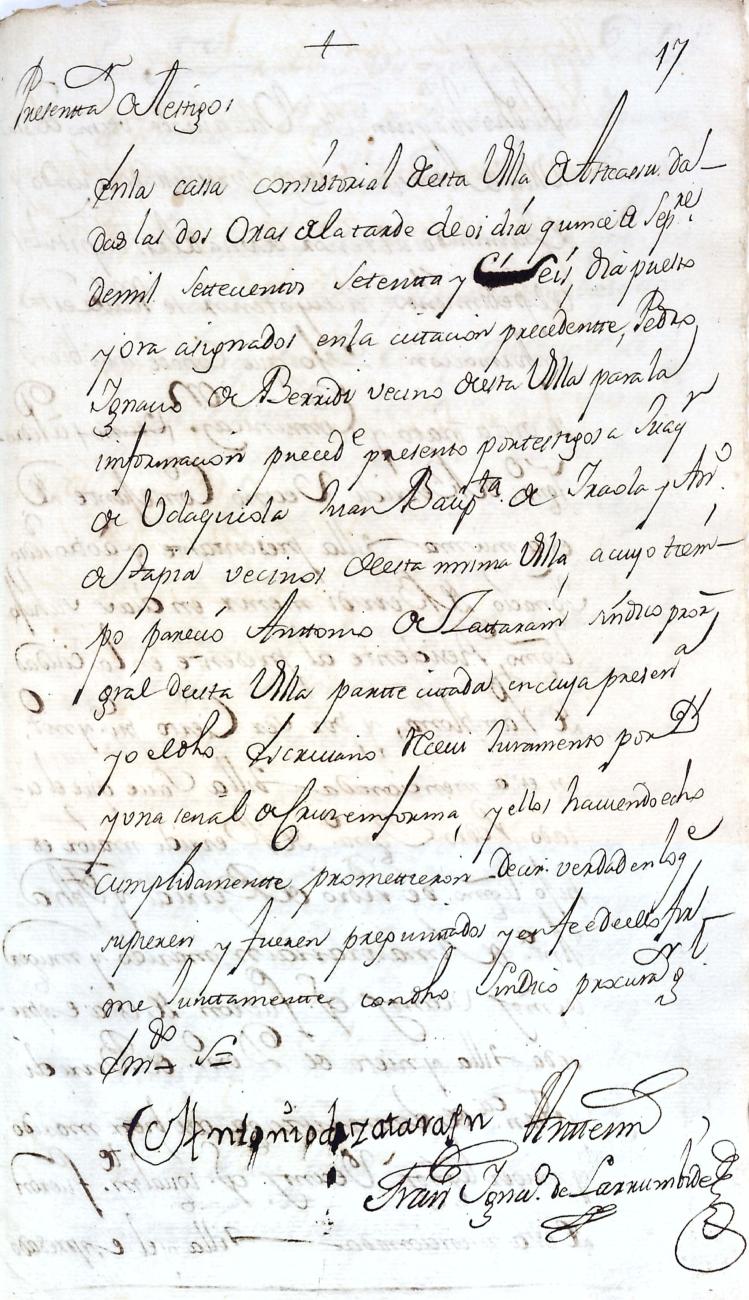 +
17
Presentta^n de testigos
En la cassa consistorial de esta Villa de Atteasu, da-
das las dos Oras de la tarde de oi día quince de Sep^re
de mil settecientos setentta y Seis, dia puesto
y ora asignados en la citacion precedentte, Pedro
Ignacio de Berridi vecino de esta Villa para la
informacion preced^e presento por testigos a Juaq^n
de Udaquiola Juan Baup^ta de Iraola y An^o
de Tapia vecinos de esta misma Villa, a cuyo tiem-
po pareció Anttonio de Zattarain síndico pro^r
gral de esta Villa partte citada, en cuya presen^a
yo el dho Escrivano Receví Juramento por D^s
y una señal de Cruz en forma, y ellos haviendo echo
cumplidamentte promettieron decir verdad en lo q^e
supieren y fueren preguntados y en fee de ello fir-
me Juntamentte con dho Síndico procurad^r g^l
Em^do S=
Antonio de zatarain Antemi
Fran^co Igna^o de Larrumbide